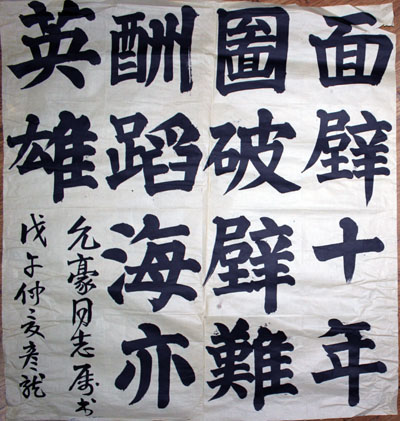 面壁十年
圖破壁難
酬蹈海亦
英雄
允豪同志属书
戊午仲夏彦龍